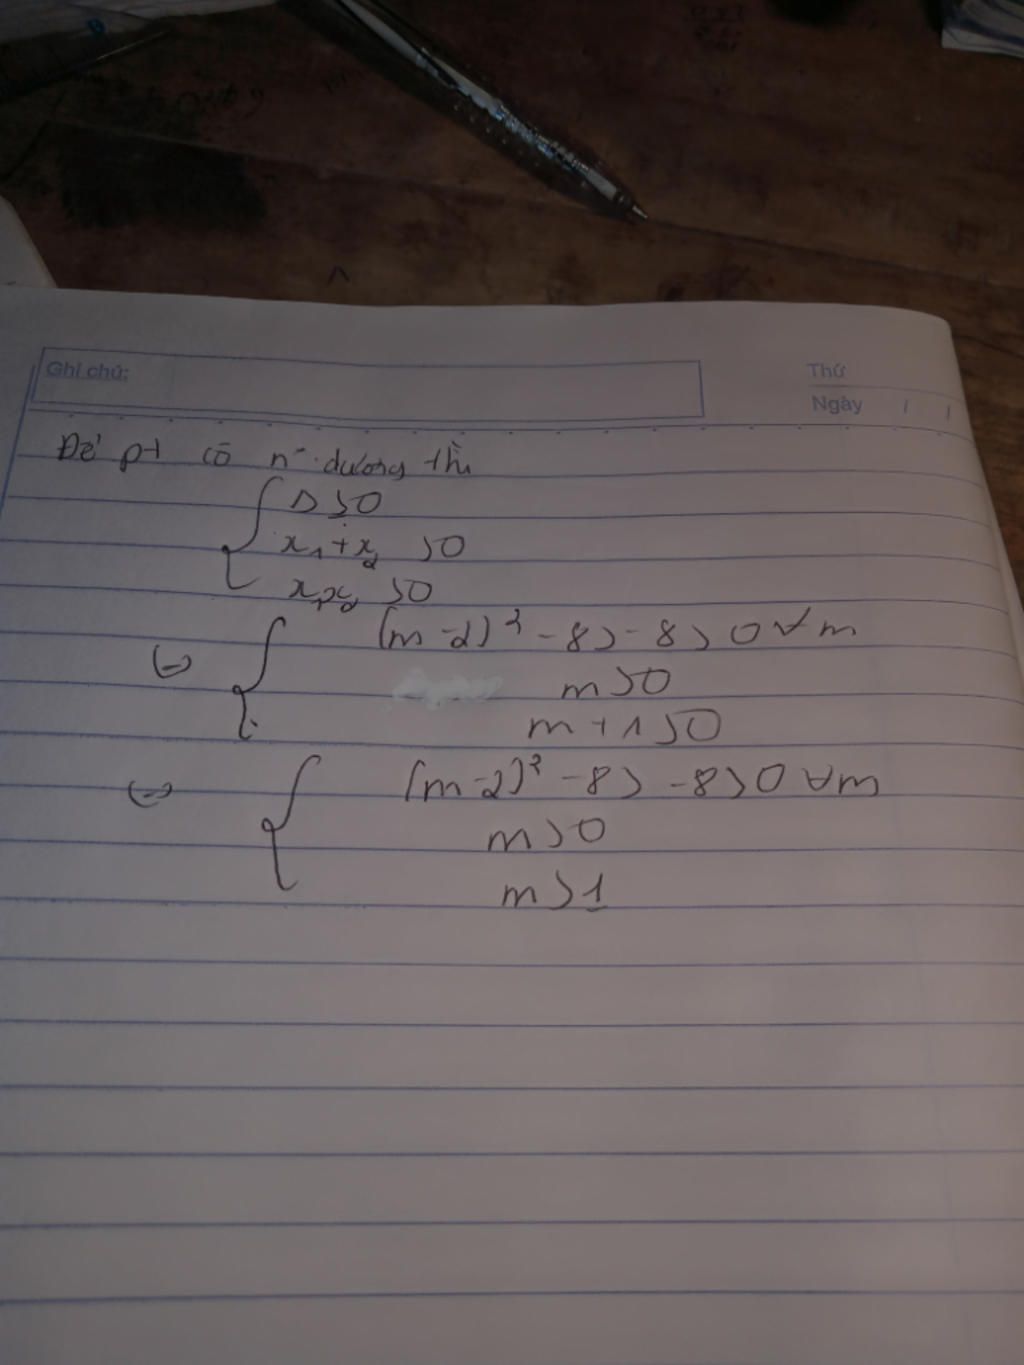 Ghi chú:
Thứ
Ngày / /
Để pt có n° dương thì
Δ ≥ 0
x₁ + x₂ > 0
x₁x₂ > 0
(m-2)² - 8 > -8 > 0 ∀ m
⇔ m > 0
m + 1 > 0
(m-2)² - 8 > -8 > 0 ∀m
⇔ m > 0
m > 1